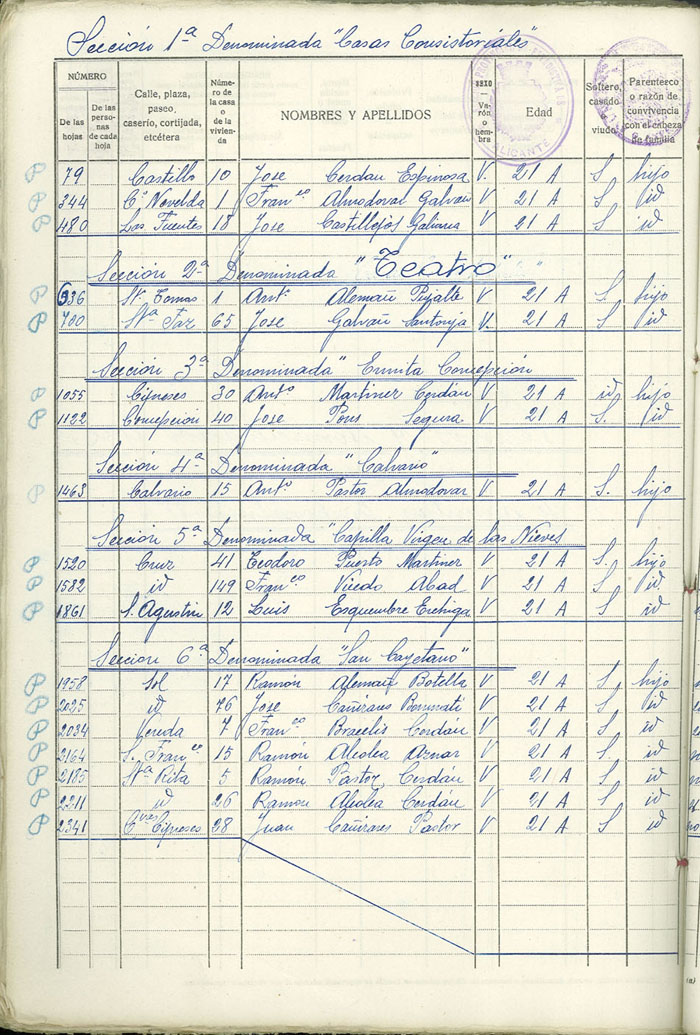 Sección 1ª Denominada "Casas Consistoriales"
NÚMERO
De las hojas
De las personas de cada hoja
Calle, plaza, paseo, caserio, cortijada, etcétera
Número de la casa o de la vivienda
NOMBRES Y APELLIDOS
SEXO — Varón o hembra
Edad
Soltero, casado viudo
Parentesco o razón de convivencia con el cabeza de familia
ALICANTE
P 79 Castillo 10 Jose Cerdan Espinosa V. 21 A S, hijo
P 344 Cº Novelda 1 Franco Almodovar Galvan V 21 A S, id
P 480 Las Fuentes 18 Jose Castillejos Galiana V 21 A S id
Sección 2ª Denominada "Teatro"
P 636 Sto Tomas 1 Antº Alemañ Pujalte V 21 A S, hijo
P 700 Sta Faz 65 Jose Galvañ Santonja V. 21 A S id
Sección 3ª Denominada "Ermita Concepción
P 1055 Cipreses 30 Antº Martinez Cerdán V 21 A id hijo
P 1122 Concepción 40 Jose Pons Segura V 21 A S. id
Sección 4ª Denominada "Calvario"
P 1463 Calvario 15 Antº Pastor Almodovar V 21 A S. hijo
Sección 5ª Denominada "Capilla Virgen de las Nieves
P 1520 Cruz 41 Teodoro Puerto Martinez V 21 A S. hijo
P 1582 id 149 Franco Abad V 21 A S, id
P 1861 S. Agustin 12 Luis Esquembre V 21 A S id
Sección 6ª Denominada "San Cayetano"
P 1958 Sol 17 Ramón Alemañ Botella V 21 A S, hijo
P 2025 id 76 Jose Cañizares V 21 A S, id
P 2034 Vereda 7 Franco Cerdán V 21 A S, id
P 2164 S. Franco 15 Ramón Alcolea Aznar V 21 A S, id
P 2185 Sta Rita 5 Ramón Pastor Cerdán V 21 A S, id
P 2211 id 26 Ramon Alcolea Cerdán V 21 A S, id
P 2341 Cipreses 28 Juan Cañizares Pastor V 21 A S id